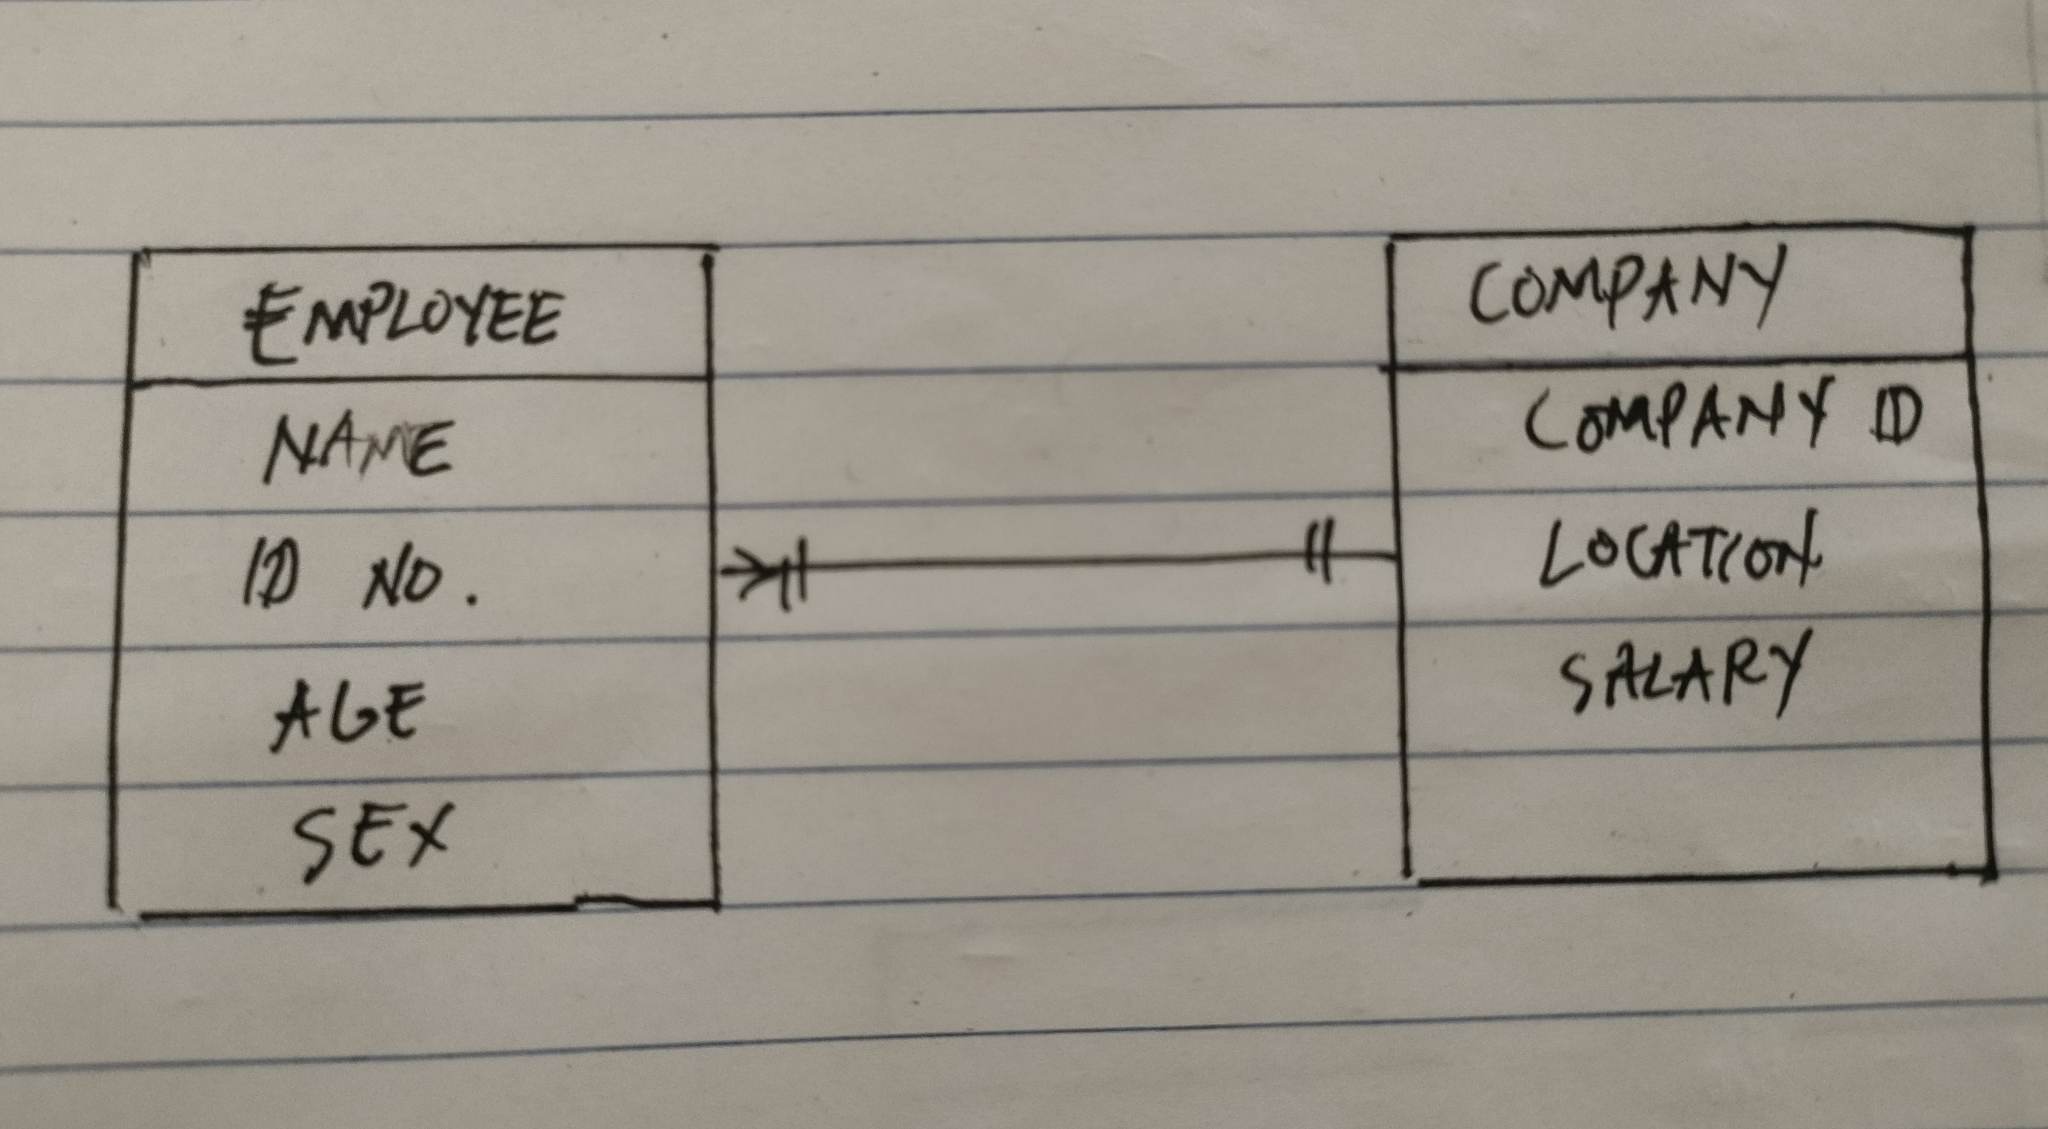 EMPLOYEE
NAME
ID NO.
AGE
SEX
COMPANY
COMPANY ID
LOCATION
SALARY